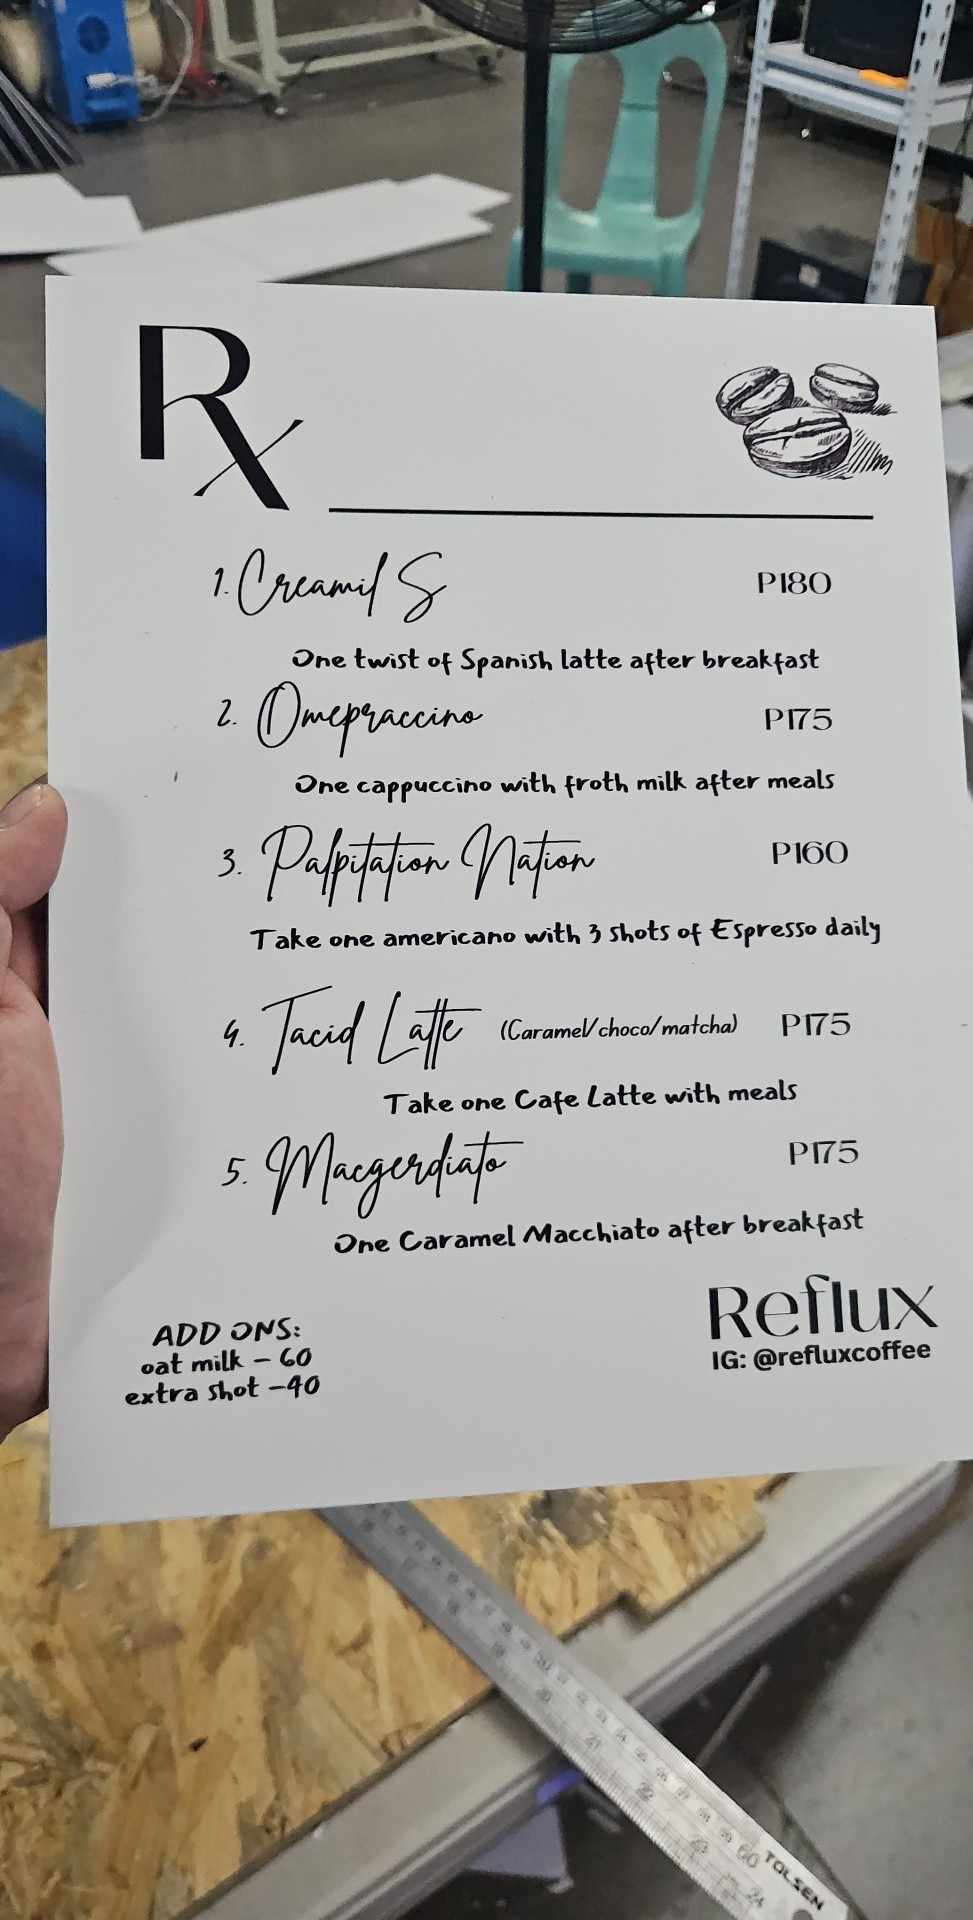 Rx
1. Creamil S P180
One twist of Spanish latte after breakfast
2. Omepraccino P175
One cappuccino with froth milk after meals
3. Palpitation Nation P160
Take one americano with 3 shots of Espresso daily
4. Tacid Latte (Caramel/choco/matcha) P175
Take one Cafe Latte with meals
5. Macgerdiato P175
One Caramel Macchiato after breakfast
ADD ONS:
oat milk - 60
extra shot -40
Reflux
IG: @refluxcoffee
TOLSEN